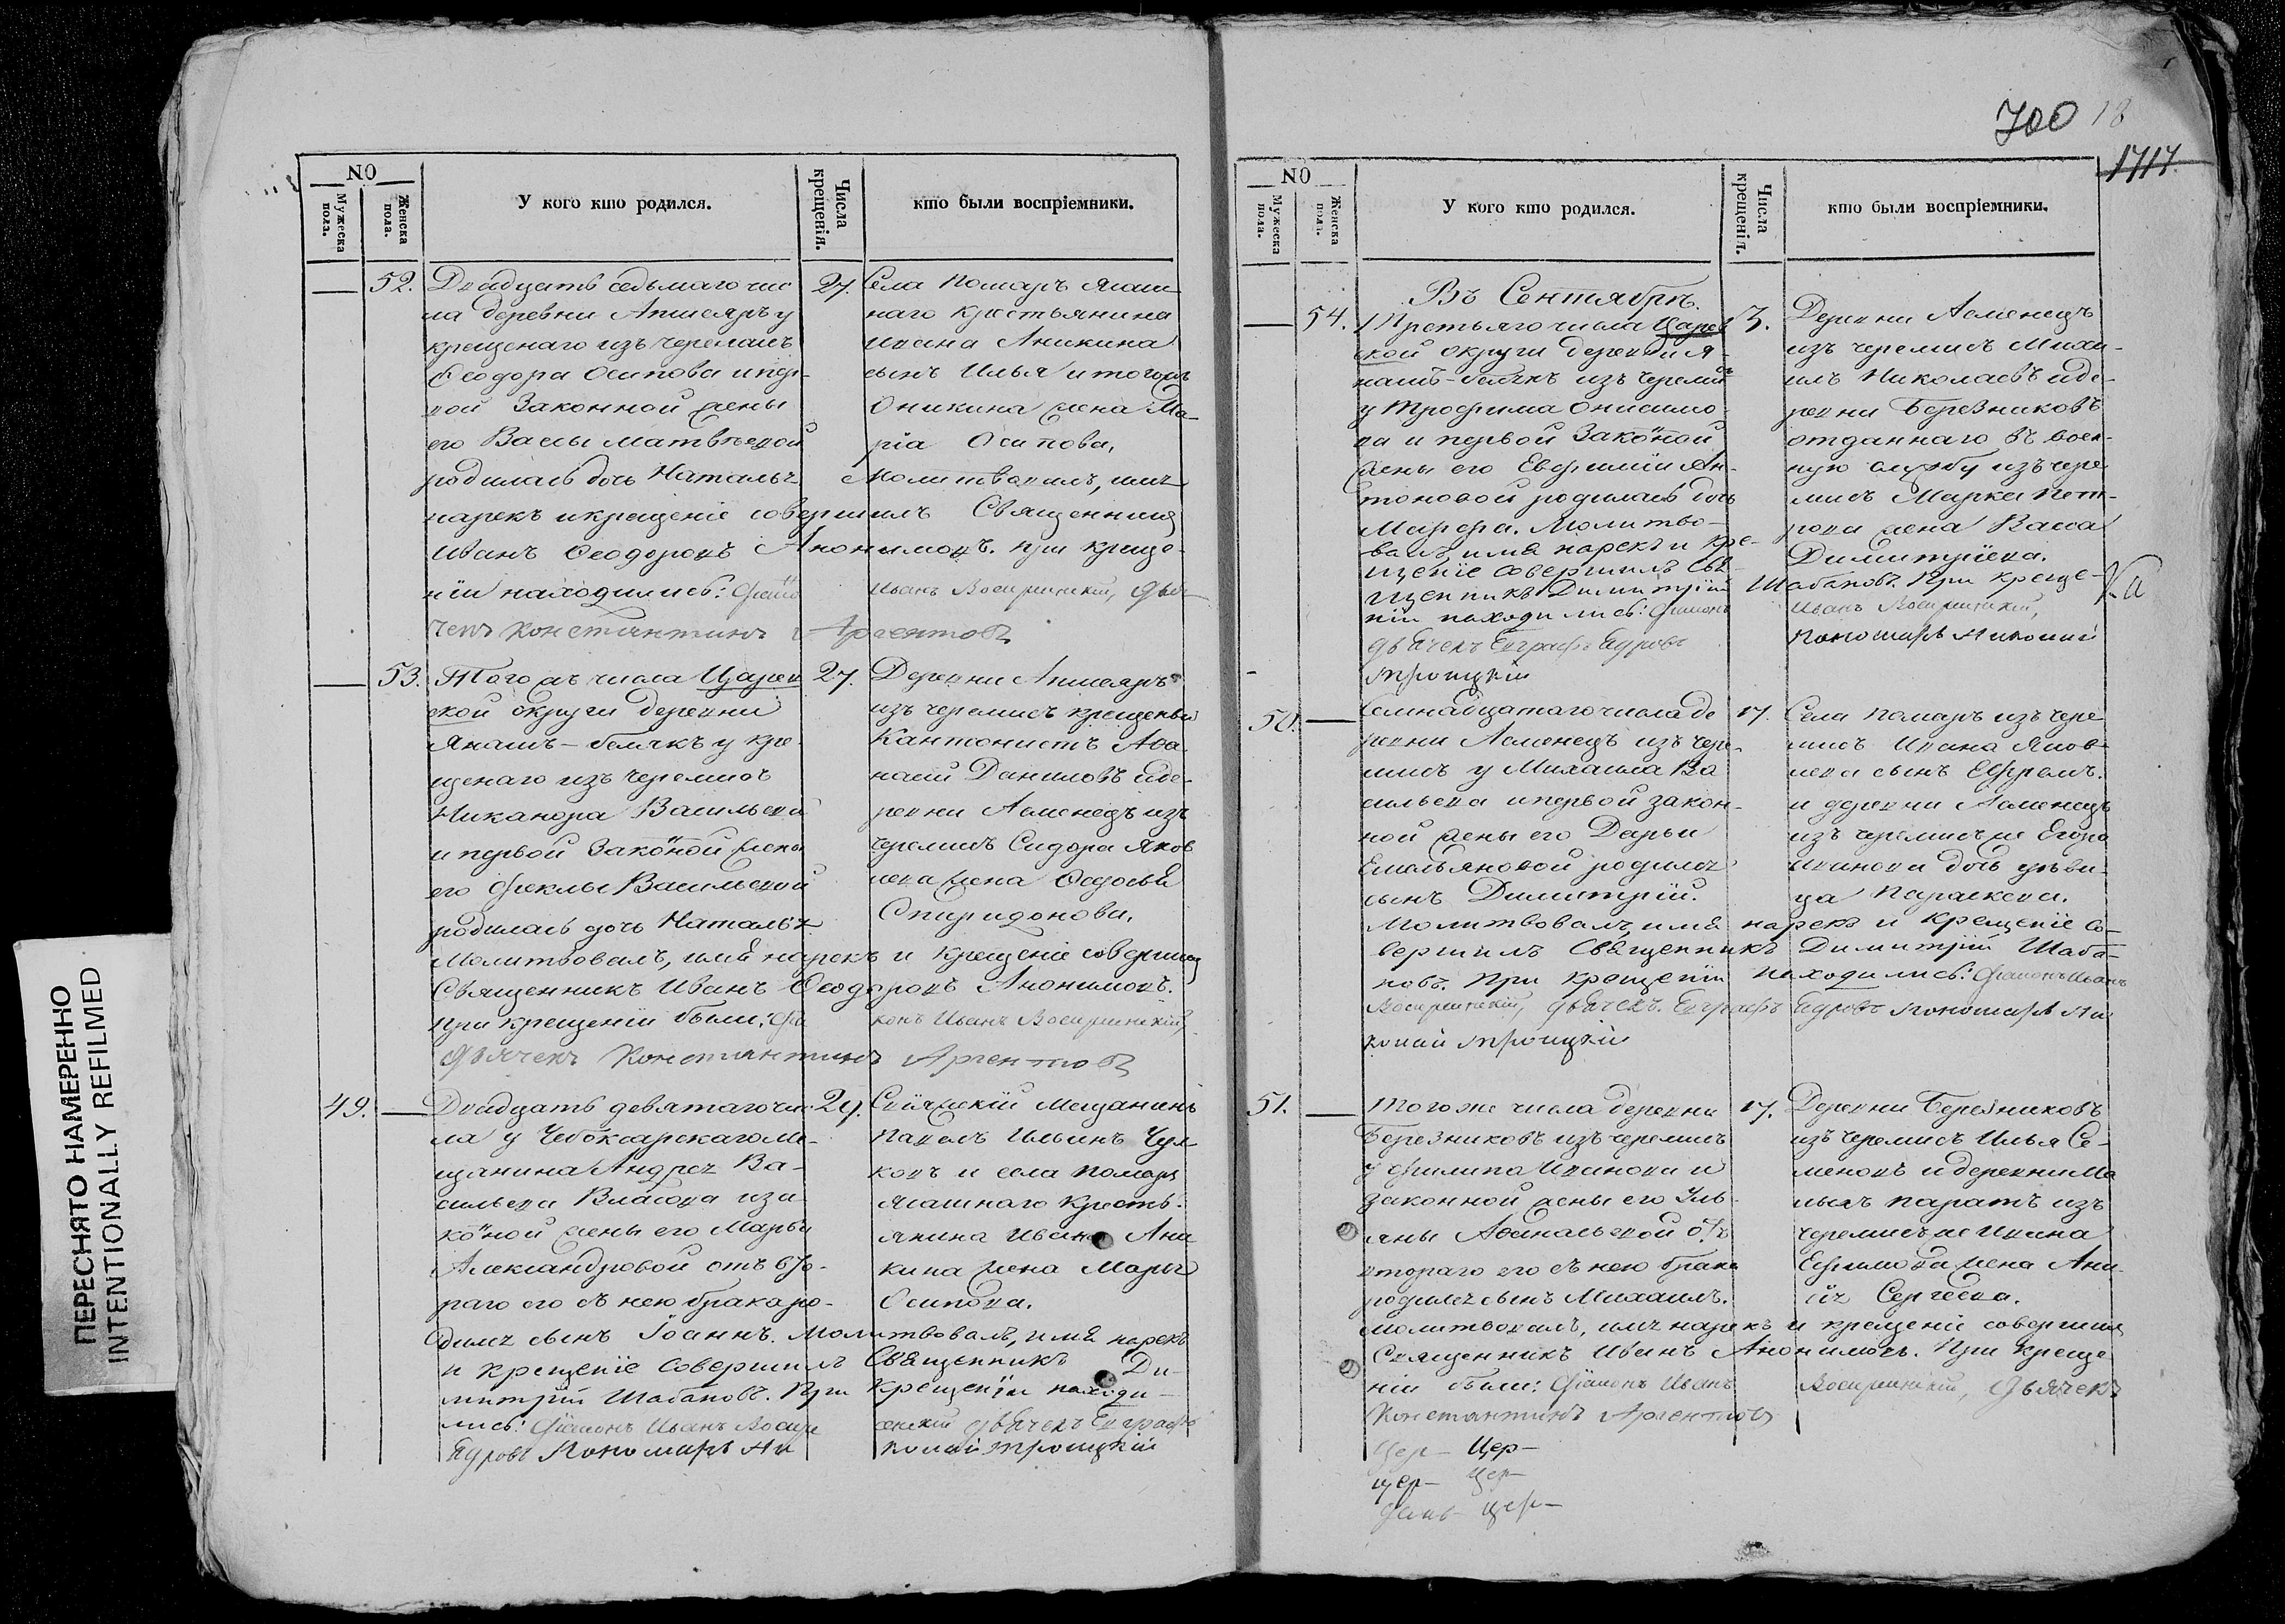 700 18
1717.
NO
Мужеска пола.
Женска пола.
У кого кто родился.
Числа крещенія.
кто были воспріемники.
52. Двадцать седьмаго чис
ла деревни Апшеяръ у
крещенаго изъ черемисъ
Ѳеодора Осипова и пер-
вой Законной жены
его Вассы Матвѣевой
родилась дочь Наталья
27. Села Помаръ Ясаш
наго крестьянина
Ивана Аникина
сынъ Илья и тогожъ
Оникина жена Ма-
рія Осипова,
Молитвовалъ, имя
нарекъ и крещеніе совершилъ Священникъ
Иванъ Ѳеодоровъ Анонимовъ. при креще-
ніи находились: Иванъ Воскресенскій, дья-
чекъ Константинъ Аргентовъ
53. Того жъ числа Царев
ской округи деревни
Янашъ-белякъ у кре-
щенаго изъ черемисъ
Никанора Васильева
и первой Законой жены
его Феклы Васильевой
родилась дочь Наталья
27. Деревни Апшеяръ
изъ черемисъ крещеный
Кантонистъ Аѳа-
насій Даниловъ и де-
ревни Ясменецъ изъ
черемисъ Сидора Яков
лева жена Ѳедосья
Спиридонова.
Молитвовалъ, имя нарекъ и крещеніе совершилъ
Священникъ Иванъ Ѳеодоровъ Анонимовъ.
При крещеніи были: Діаконъ Иванъ Воскресенскій,
Дьячекъ Константинъ Аргентовъ
49. Двадцать девятаго чис
ла у Чебоксарскаго Ме-
щанина Андрея Ва-
сильева Власова и за-
коной жены его Марьи
Александровой отъ вто-
раго его съ нею брака ро-
29. Свіяжскій Мещанинъ
Павелъ Ильинъ Чул
ковъ и села Помаръ
Ясашнаго Кресть-
янина Ивана Ани
кина жена Марья
Осипова.
дился сынъ Іоаннъ. Молитвовалъ, имя нарекъ
и крещеніе совершилъ Священникъ Ди-
митрій Шабановъ. При крещеніи находи-
лись: Діаконъ Иванъ Воскресенскій дьячекъ Евграфъ
Кудровъ Пономарь Николай Троицкій
NO
Мужеска пола.
Женска пола.
У кого кто родился.
Числа крещенія.
кто были воспріемники.
Въ Сентябрѣ.
54. Третьяго числа Царев
ской округи деревни Я-
нашъ-белякъ изъ черемисъ
у Трофима Онисимо-
ва и первой Законой
жены его Евфиміи Ан-
тоновой родилась дочь
Марфа. Молитво-
валъ, имя нарекъ и кре-
щеніе совершилъ Свя-
щенникъ Димитрій Шабановъ. При креще-
3. Деревни Ясменецъ
изъ черемисъ Миха-
илъ Николаевъ и де-
ревни Березниковъ
отданнаго въ воен-
ную службу изъ чере
мисъ Марка Пет-
рова жена Васса
Димитріева.
ніи находились: Діаконъ Иванъ Воскресенскій,
дьячекъ Евграфъ Кудровъ пономарь Николай
Троицкій
50. Семнадцатаго числа де
ревни Ясменецъ изъ чере-
мисъ у Михаила Ва
сильева и первой закон-
ной жены его Дарьи
Емельяновой родился
сынъ Димитрій.
17. Села Помаръ изъ чере
мисъ Ивана Яков-
лева сынъ Ефремъ.
и деревни Ясменецъ
изъ черемисъ же Егора
Иванова дочь дѣви-
ца Параскева.
Молитвовалъ, имя нарекъ и крещеніе со-
вершилъ Священникъ Димитрій Шаба-
новъ. При крещеніи находились: Діаконъ Иванъ
Воскресенскій, дьячекъ Евграфъ Кудровъ пономарь Ни
колай Троицкій
51. Того же числа деревни
Березниковъ изъ черемисъ
у Филипа Иванова и
законной жены его Уль-
яны Аѳанасьевой отъ
втораго его съ нею брака
родился сынъ Михаилъ.
17. Деревни Березниковъ
изъ черемисъ Илья Се-
меновъ и деревни Ма
лыхъ Паратъ изъ
черемисъ же Ивана
Ефимова жена Ана-
ія Сергѣева.
Молитвовалъ, имя нарекъ и крещеніе совершилъ
Священникъ Иванъ Анонимовъ. При креще
ніи были: Діаконъ Иванъ Воскресенскій, Дьячекъ
Константинъ Аргентовъ
Цер- Цер-
цер- Цер-
цер-
ПЕРЕСНЯТО НАМЕРЕННО
INTENTIONALLY REFILMED